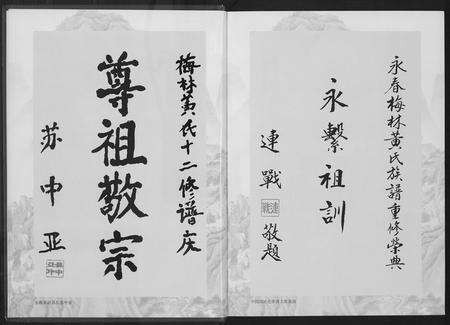 永春梅林黃氏族譜重修榮典
永繫祖訓
連戰
敬題
梅林黄氏十二修譜庆
尊祖敬宗
苏中亚